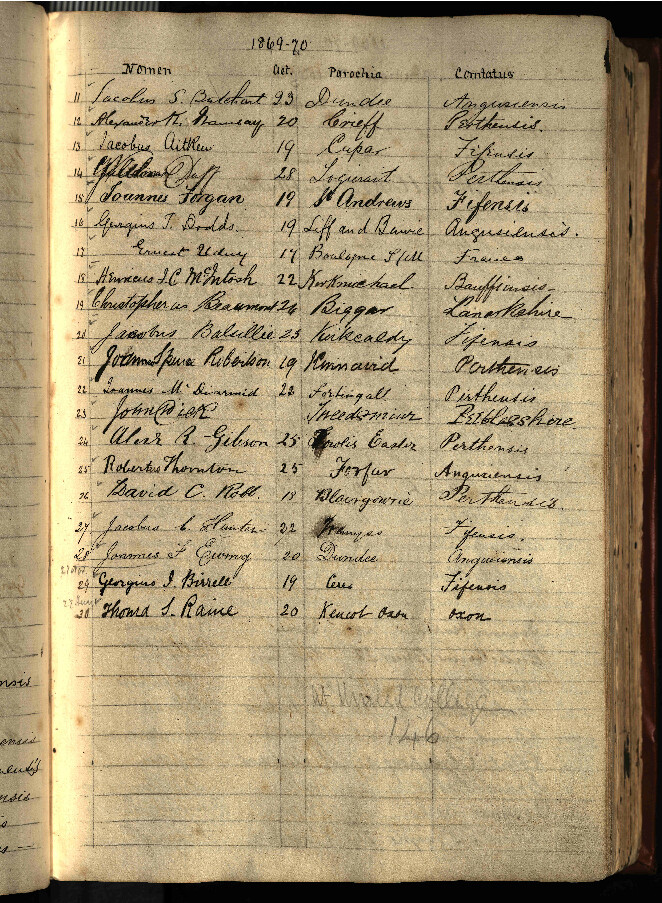 1869-70
Nomen Aet. Parochia Comitatus
11 Jacobus S. Butchart 23 Dundee Angusiensis
12 Alexander Ramsay 20 Crieff Perthensis.
13 Jacobus Aitken 19 Cupar Fifensis
14 Duff 28 Logierait Perthensis
15 Joannes Forgan 19 St Andrews Fifensis
16 Georgius T. Dodds. 19 Liff and Angusiensis.
17 Ernest Udny 17 Boulogne France
18 Henricus J. C. McIntosh 22 Kirkmichael Banffiensis
19 Christopherus Beaumont 24 Biggar Lanarkshire
20 Jacobus 23 Kirkcaldy Fifensis
21 Spence Robertson 19 Perthensis
22 Joannes McDiarmid 23 Fortingall Perthensis
23 John Dick Tweedsmuir Peeblesshire.
24 Alexr R. Gibson 25 Fowlis Easter Perthensis
25 Robertus Thornton 25 Forfar Angusiensis
26 David C. Robb. 18 Blairgowrie Perthensis.
27 Jacobus C. Hunter 22 Wemyss Fifensis.
28 Joannes F Ewing 20 Dundee Angusiensis
29 Georgius J. Birrell 19 Ceres Fifensis
30 Thomas S. Raine 20 Kencot Oxon Oxon
St College
146